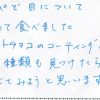 パで目について
って食べました
トチョコのコーティングが
種類も見つけたら
てみようと思います